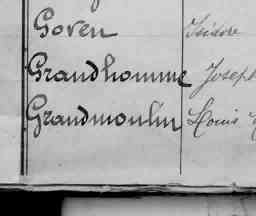 Goven Isidore
Grandhomme Joseph
Grandmoulin Louis